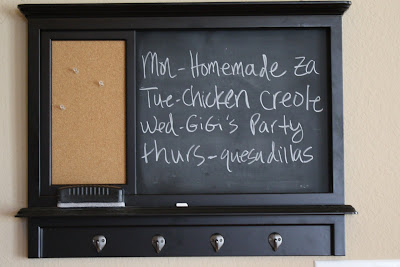 Mon-Homemade Za
Tue-Chicken creole
Wed-GiGi's Party
thurs-quesadillas